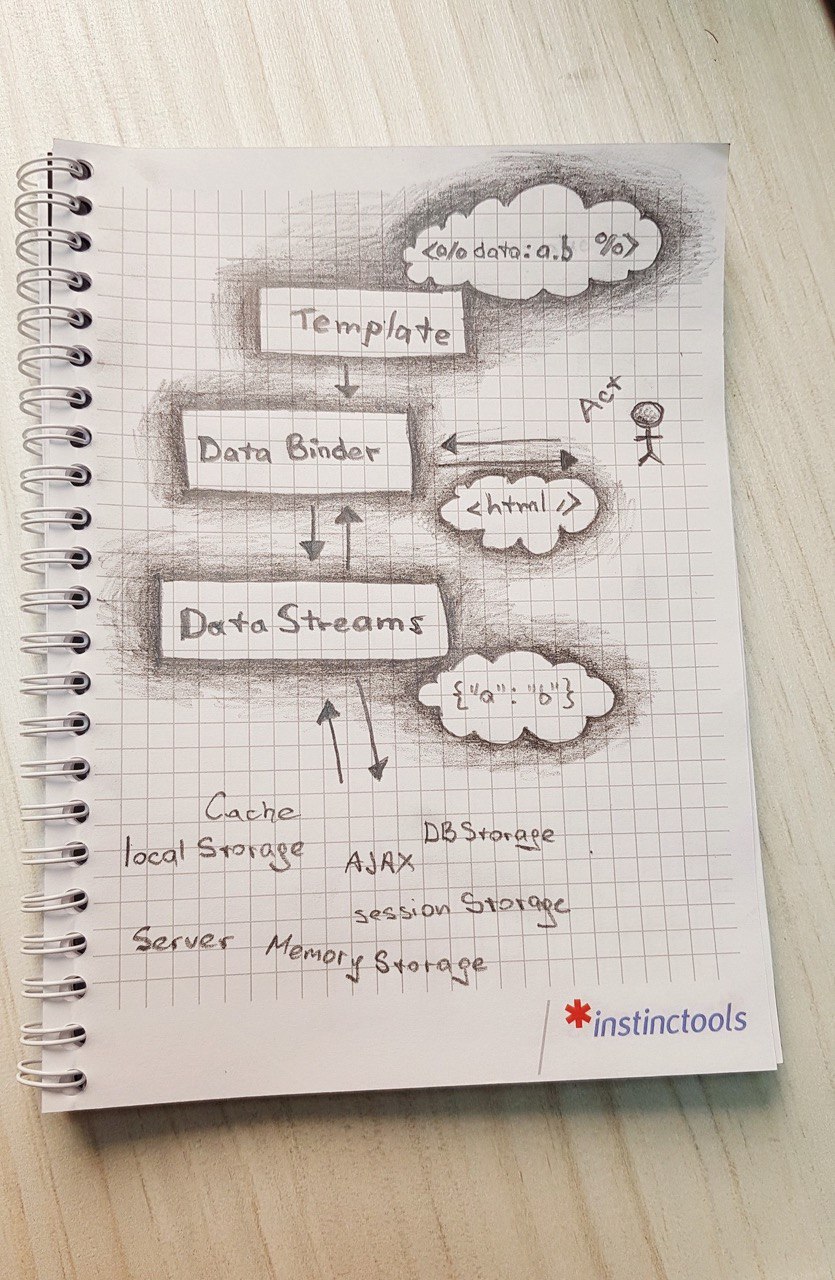 <% data: a.b %>
Template
Act
Data Binder
<html />
Data Streams
{"a": "b"}
Cache
DB Storage
local Storage
AJAX
session Storage
Server
Memory Storage
*instinctools